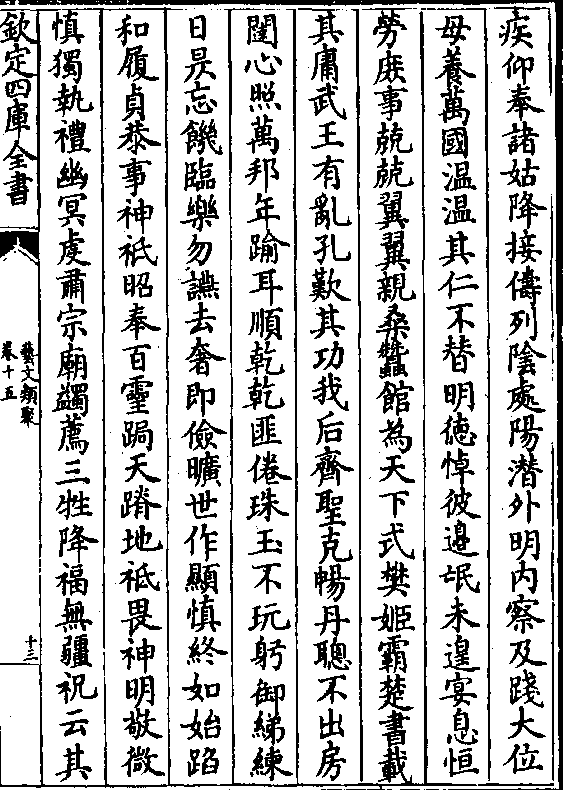 疾仰奉諸姑降接儔列陰處陽潛外明内察及踐大位
母養萬國温温其仁不替明徳悼彼邊氓未遑宴息恒
勞庶事兢兢翼翼親桑蠶館為天下式樊姬霸楚書載
其庸武王有亂孔歎其功我后齊聖克暢丹聰不出房
闥心照萬邦年踰耳順乾乾匪倦珠玉不玩躬御綈練
日昃忘饑臨樂勿讌去奢即儉曠世作顯慎終如始蹈
和履貞恭事神祗昭奉百靈跼天蹐地祗畏神明敬微
慎獨執禮幽冥虔肅宗廟蠲薦三牲降福無疆祝云其
欽定四庫全書
藝文類聚
卷十五
十三